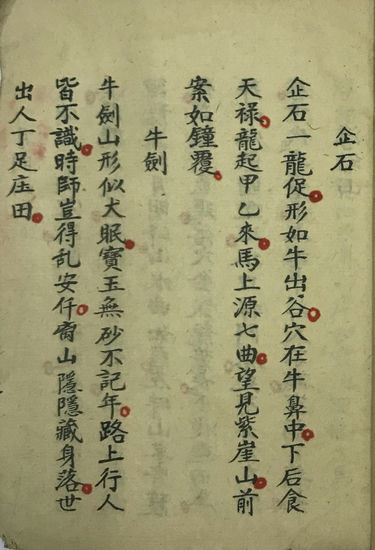 企石
企石一龍促形如牛出谷穴在牛鼻中下后食
天祿龍起甲乙來馬上源七曲望見紫崖山前
案如鐘覆
牛劍
牛劍山形似犬眠寶玉無砂不記年路上行人
皆不識時師豈得乱安仟脔山隱隱藏身落世
出人丁足庄田